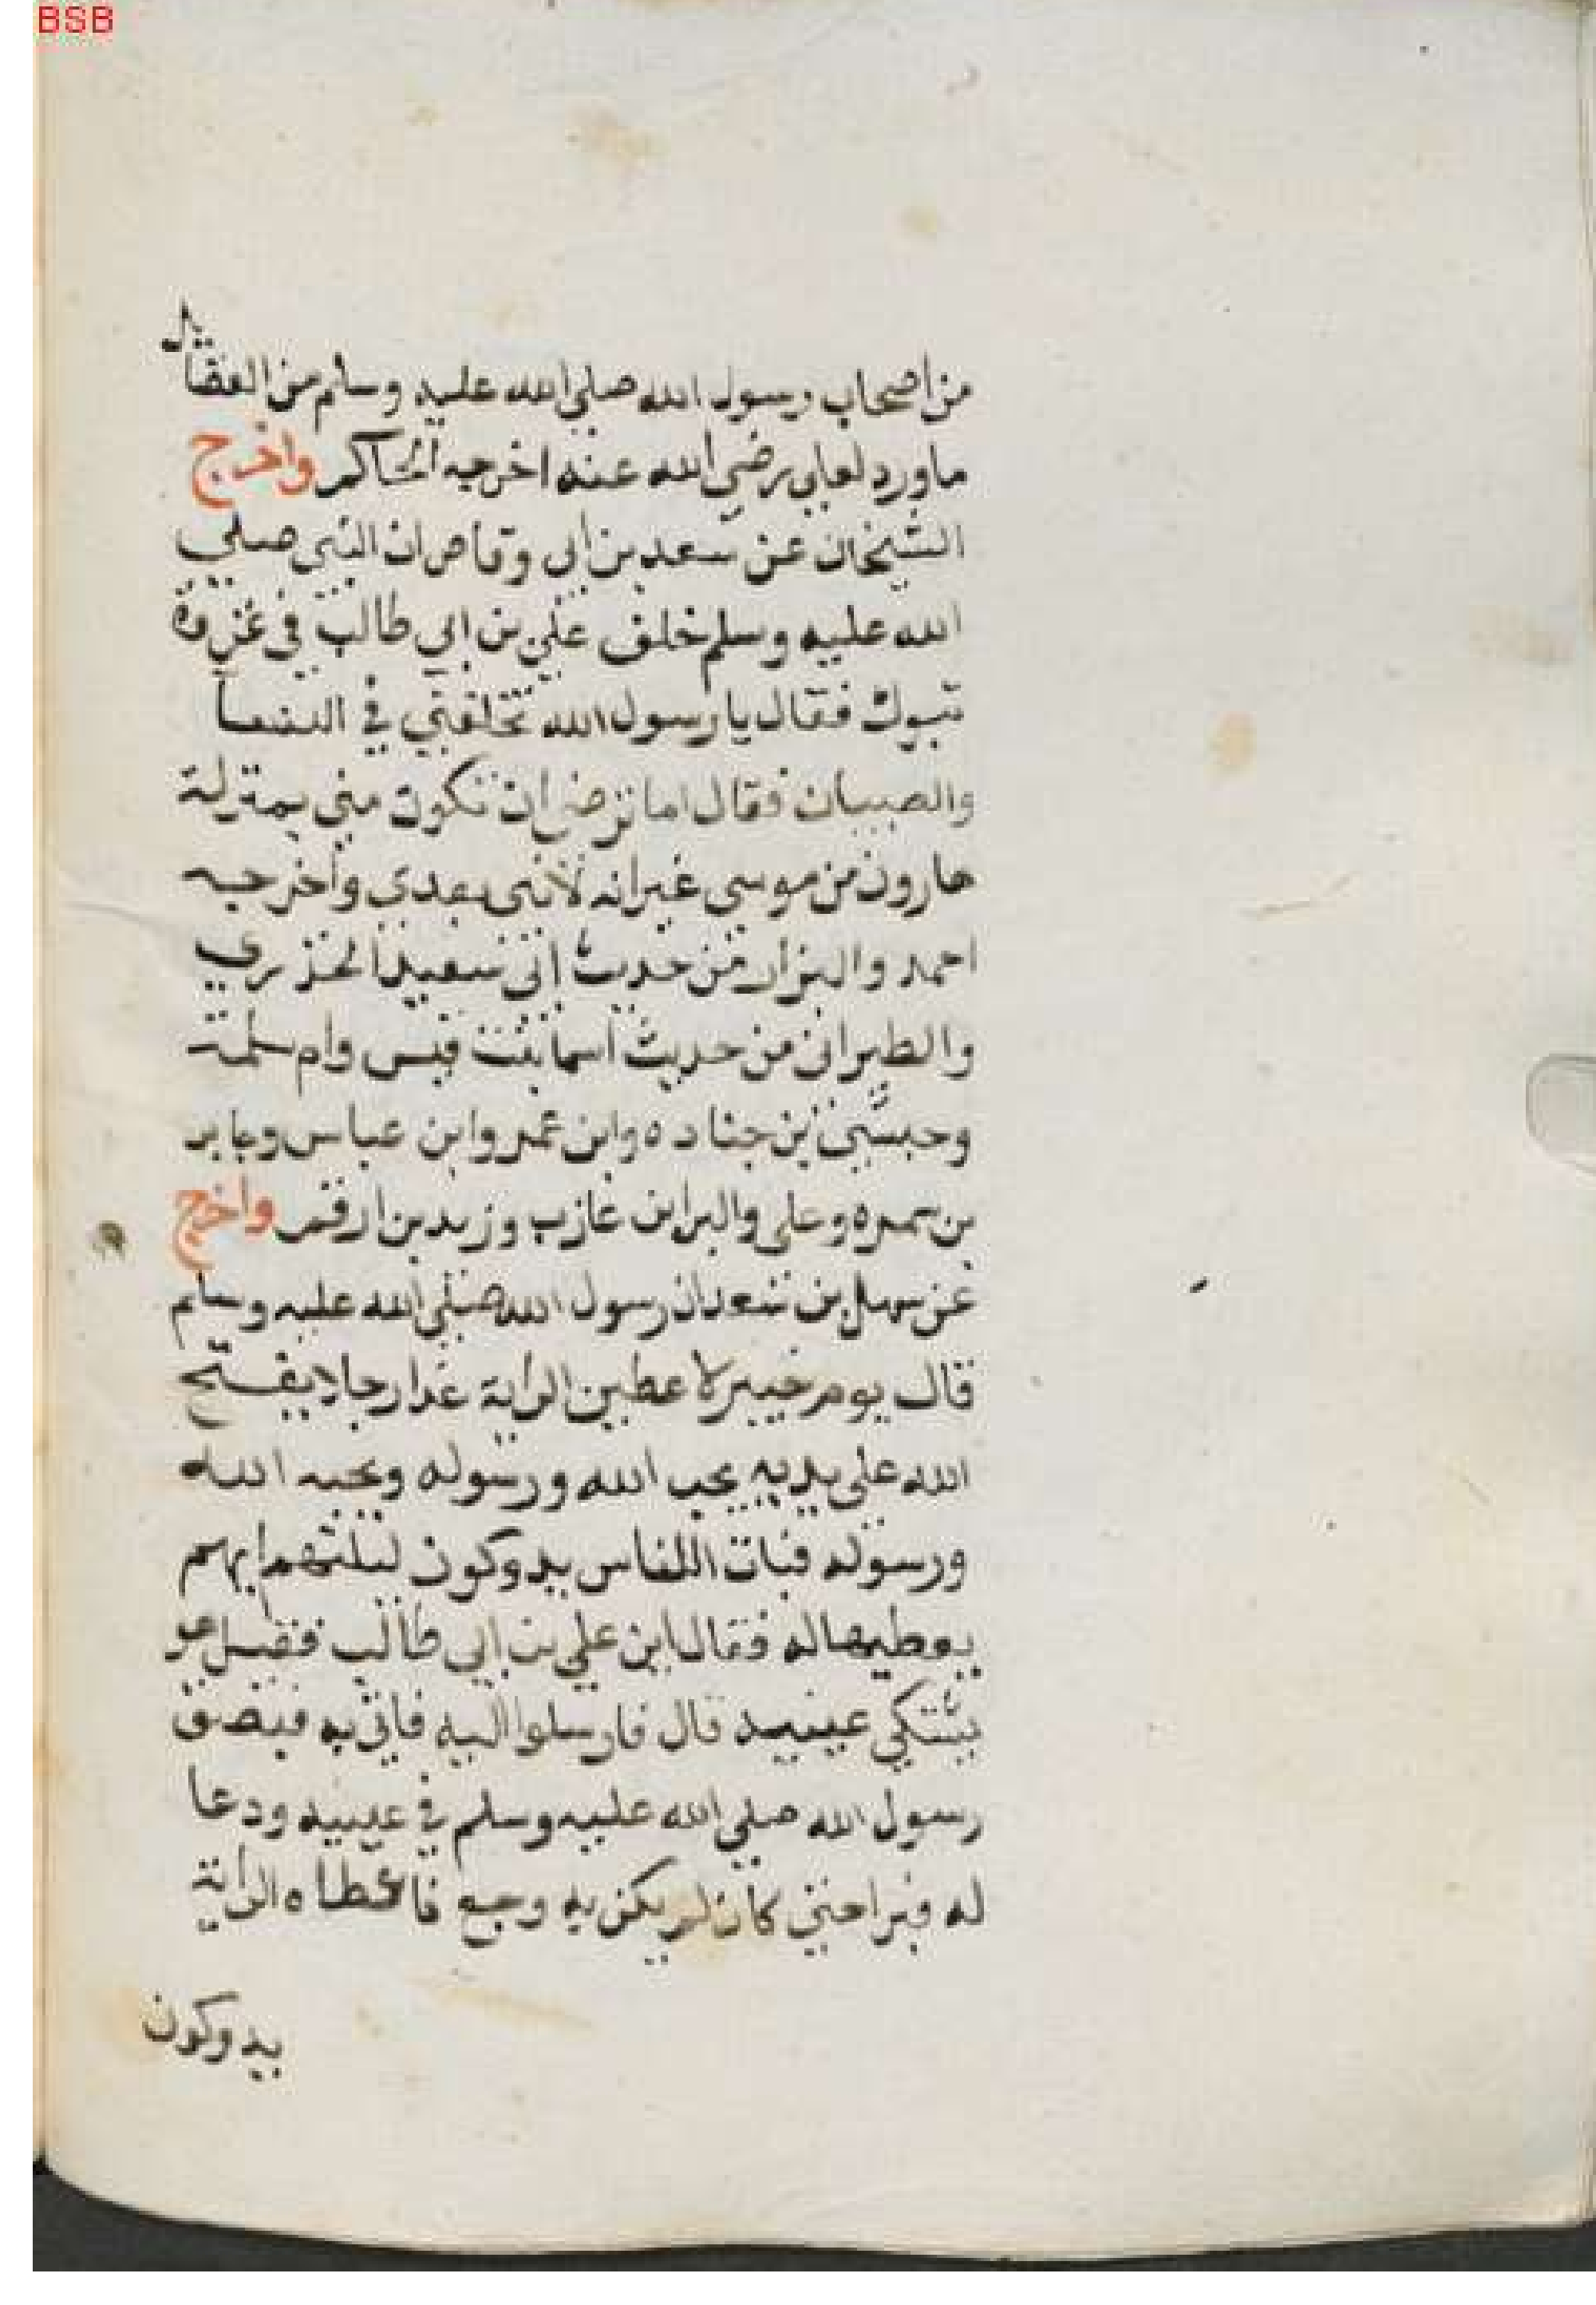 BSB
من اصحاب رسول الله صلى الله عليه وسلم من الفضائل
ما ورد لعلي رضي الله عنه اخرجه الحاكم واخرج
الشيخان عن سعد بن ابي وقاص ان النبي صلي
الله عليه وسلم خلف علي بن ابي طالب في غزوة
تبوك فقال يا رسول الله تخلفني في النسا
والصبيان فقال اما ترضى ان تكون مني بمنزلة
هارون من موسى غير انه لا نبى بعدي واخرجه
احمد والبزار من حديث ابي سعيد الخذري
والطبراني من حديث اسما بنت قيس وام سلمة
وحبشي بن جناده وابن عمر وابن عباس وجابر
بن سمره وعلى والبرا بن عازب وزيد بن ارقم واخرج
عن سهل بن سعد ان رسول الله صلي الله عليه وسلم
قال يوم خيبر لاعطين الراية غدا رجلا يفتح
الله على يديه يحب الله ورسوله ويحبه الله
ورسوله فبات اللناس يدوكون ليلتهم ايهم
يعطيها له فقال اين علي بن ابي طالب فقيل هو
يشتكي عينيه قال فارسلوا اليه فاتي به فبصق
رسول الله صلي الله عليه وسلم في عينيه ودعا
له فبرا حتي كان لم يكن به وجع فاعطاه الراية
يدوكون